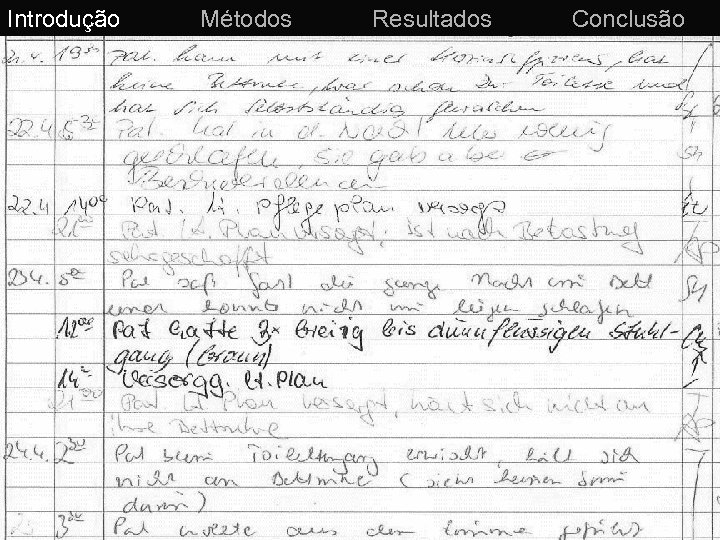 Introdução Métodos Resultados Conclusão
21.4. 19 Pat. kam mit einer Herzinsuffizienz, hat
keine Bettruhe, war schon zur Toilette und
hat sich selbstständig gewaschen
22.4 5 Pat. hat in d. Nacht sehr wenig
geschlafen, sie gab aber
an
22.4 14 00 Pat. lt. Pflegeplan versorgt
21 Pat lt. Plan versorgt, ist nach Belastung
sehr geschafft
23.4. 5 Pat saß fast die ganze Nacht im Bett
konnte nicht im liegen schlafen
12 00 Pat hatte 3x breiig bis dünnflüssigen Stuhl-
gang (braun)
14 Versorgg. lt. Plan
21 Pat lt Plan versorgt, hält sich nicht an
ihre Bettruhe
24.4. 2 Pat beim Toilettengang erwischt, hält sich
nicht an Bettruhe (sieht keinen Sinn
darin)
3 Pat wurde aus dem Zimmer geführt